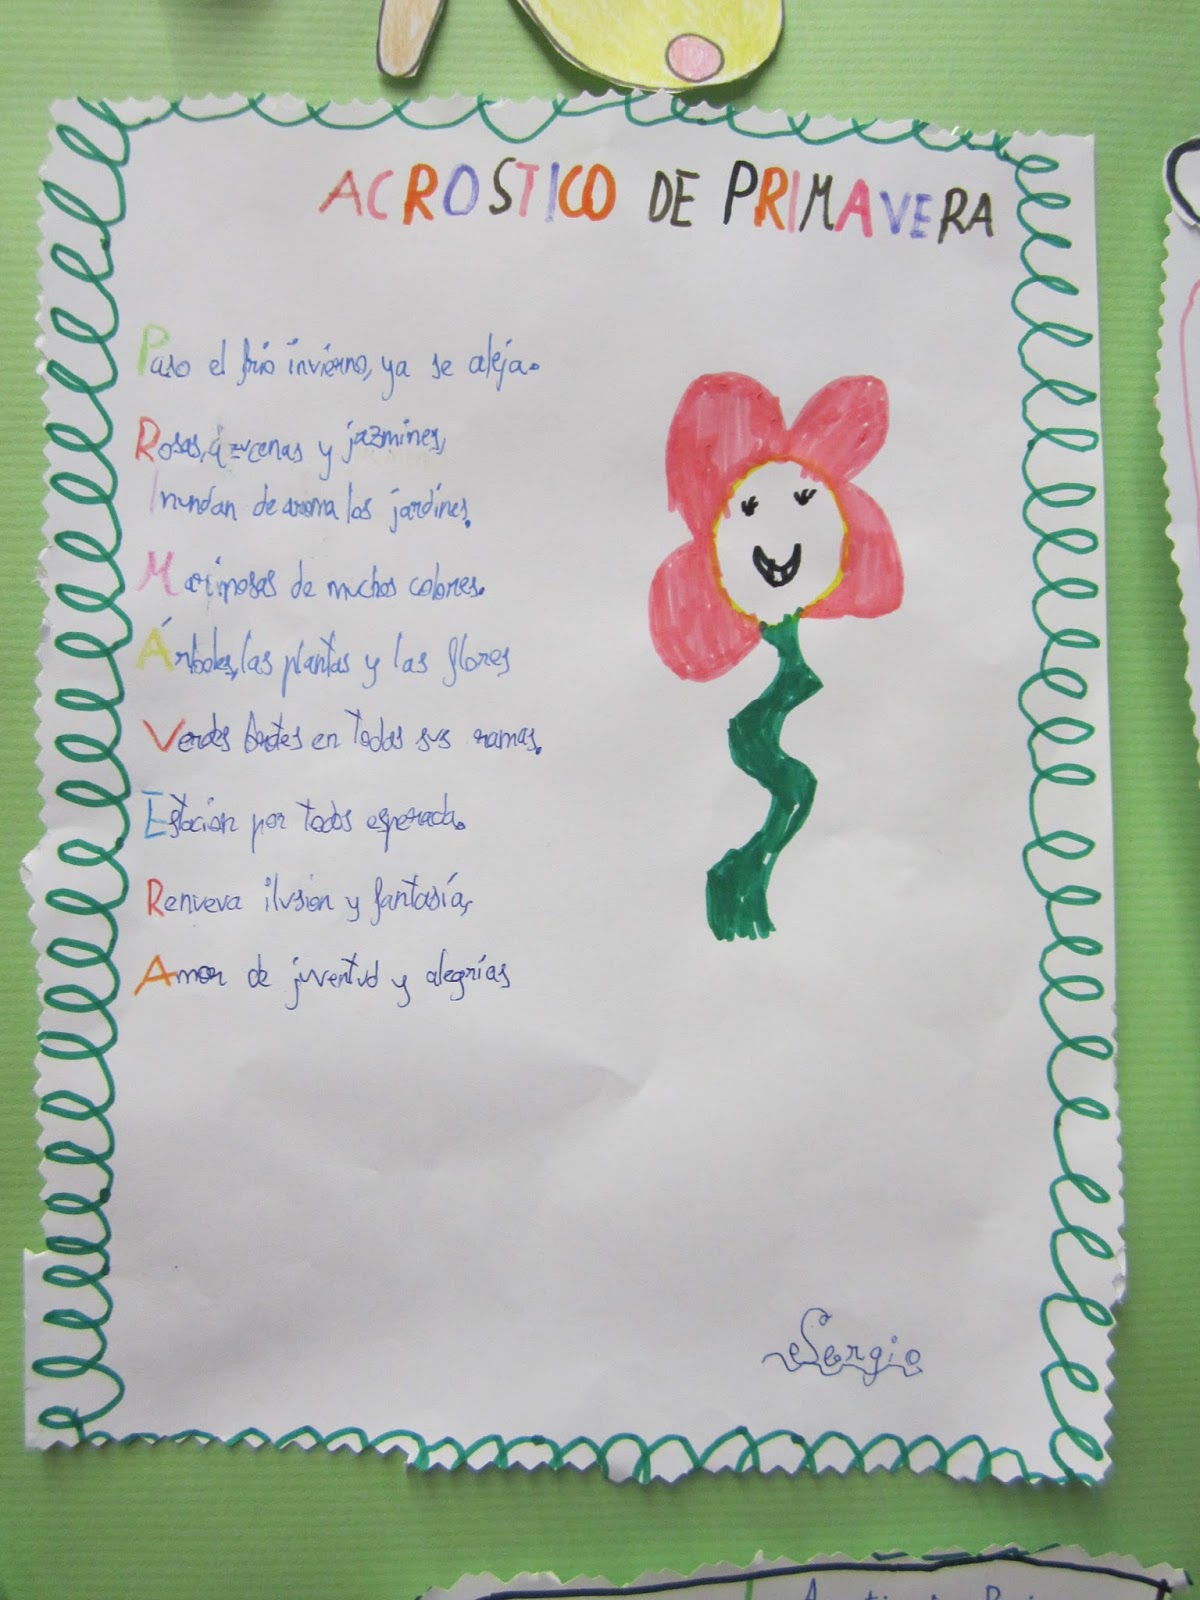 ACROSTICO DE PRIMAVERA
Paso el frio invierno, ya se aleja.
Rosas, azucenas y jazmines,
Inundan de aroma los jardines.
Mariposas de muchos colores.
Árboles, las plantas y las flores
Verdes brotes en todas sus ramas.
Estacion por todos esperada.
Renueva ilusion y fantasía,
Amor de juventud y alegrías
Sergio